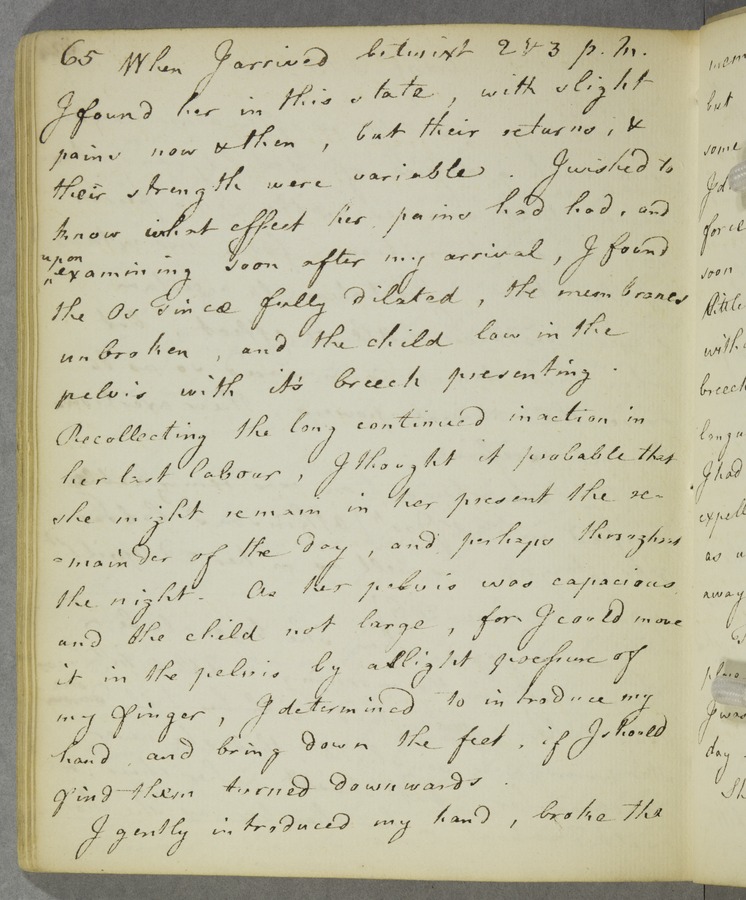 65 When I arrived betwixt 2 & 3 p. m.
I found her in this state, with slight
pains now & then, but their returns, &
their strength were variable. I wished to
know what effect her pains had had, and
upon
examining soon after my arrival, I found
the Os Tincæ fully dilated, the membranes
unbroken, and the child low in the
pelvis with it's breech presenting.
Recollecting the long continued inaction in
her last labour, I thought it probable that
she might remain in her present the re-
-mainder of the day, and perhaps throughout
the night. As her pelvis was capacious
and the child not large, for I could move
it in the pelvis by a slight pressure of
my finger, I determined to introduce my
hand and bring down the feet, if I should
find them turned downwards.
I gently introduced my hand, broke the
but
some
force
soon
little
with
breech
I had
expell
as
away
I was
day